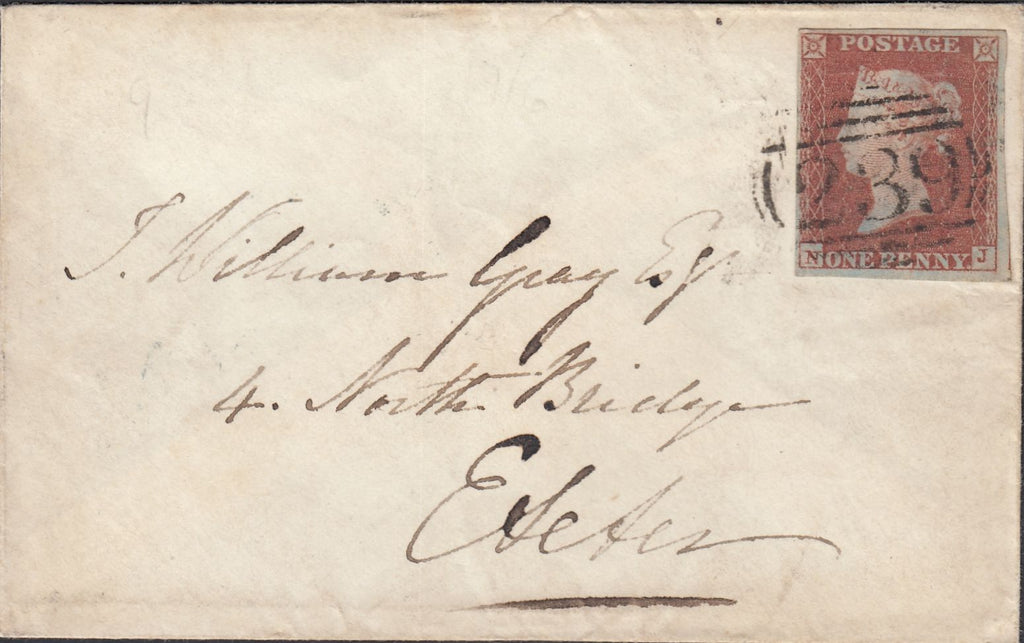 POSTAGE
239
N ONE PENNY. J
J. William Gray Esqr
4. North Bridge
Exeter